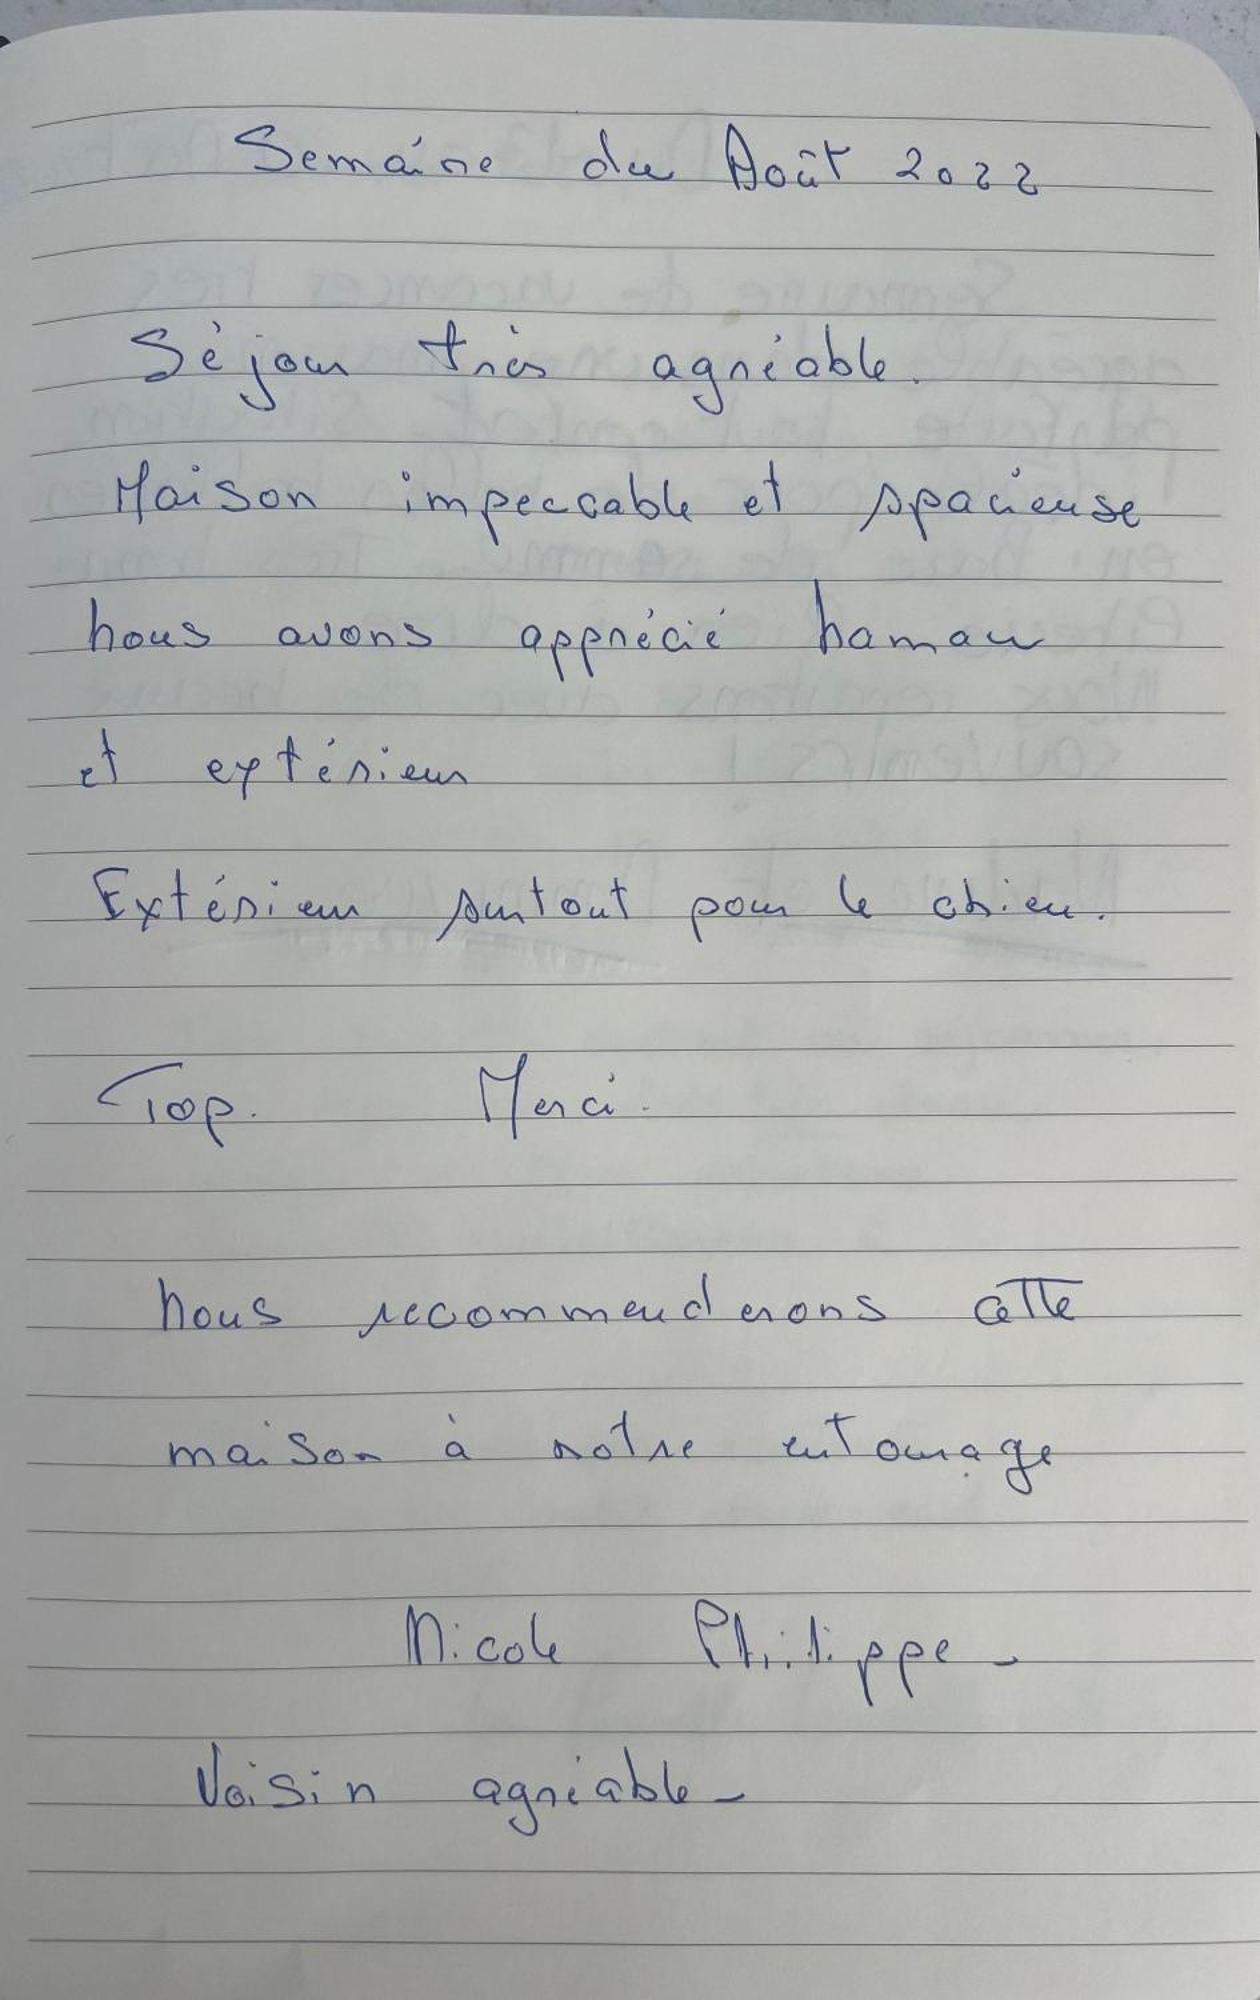 Semaine du Août 2022
Séjour très agréable.
Maison impeccable et spacieuse
nous avons apprécié hamau
et extérieur
Extérieur surtout pour le chien.
Top. Merci.
nous recommenderons cette
maison à notre entourage
Nicole Philippe -
Voisin agréable -